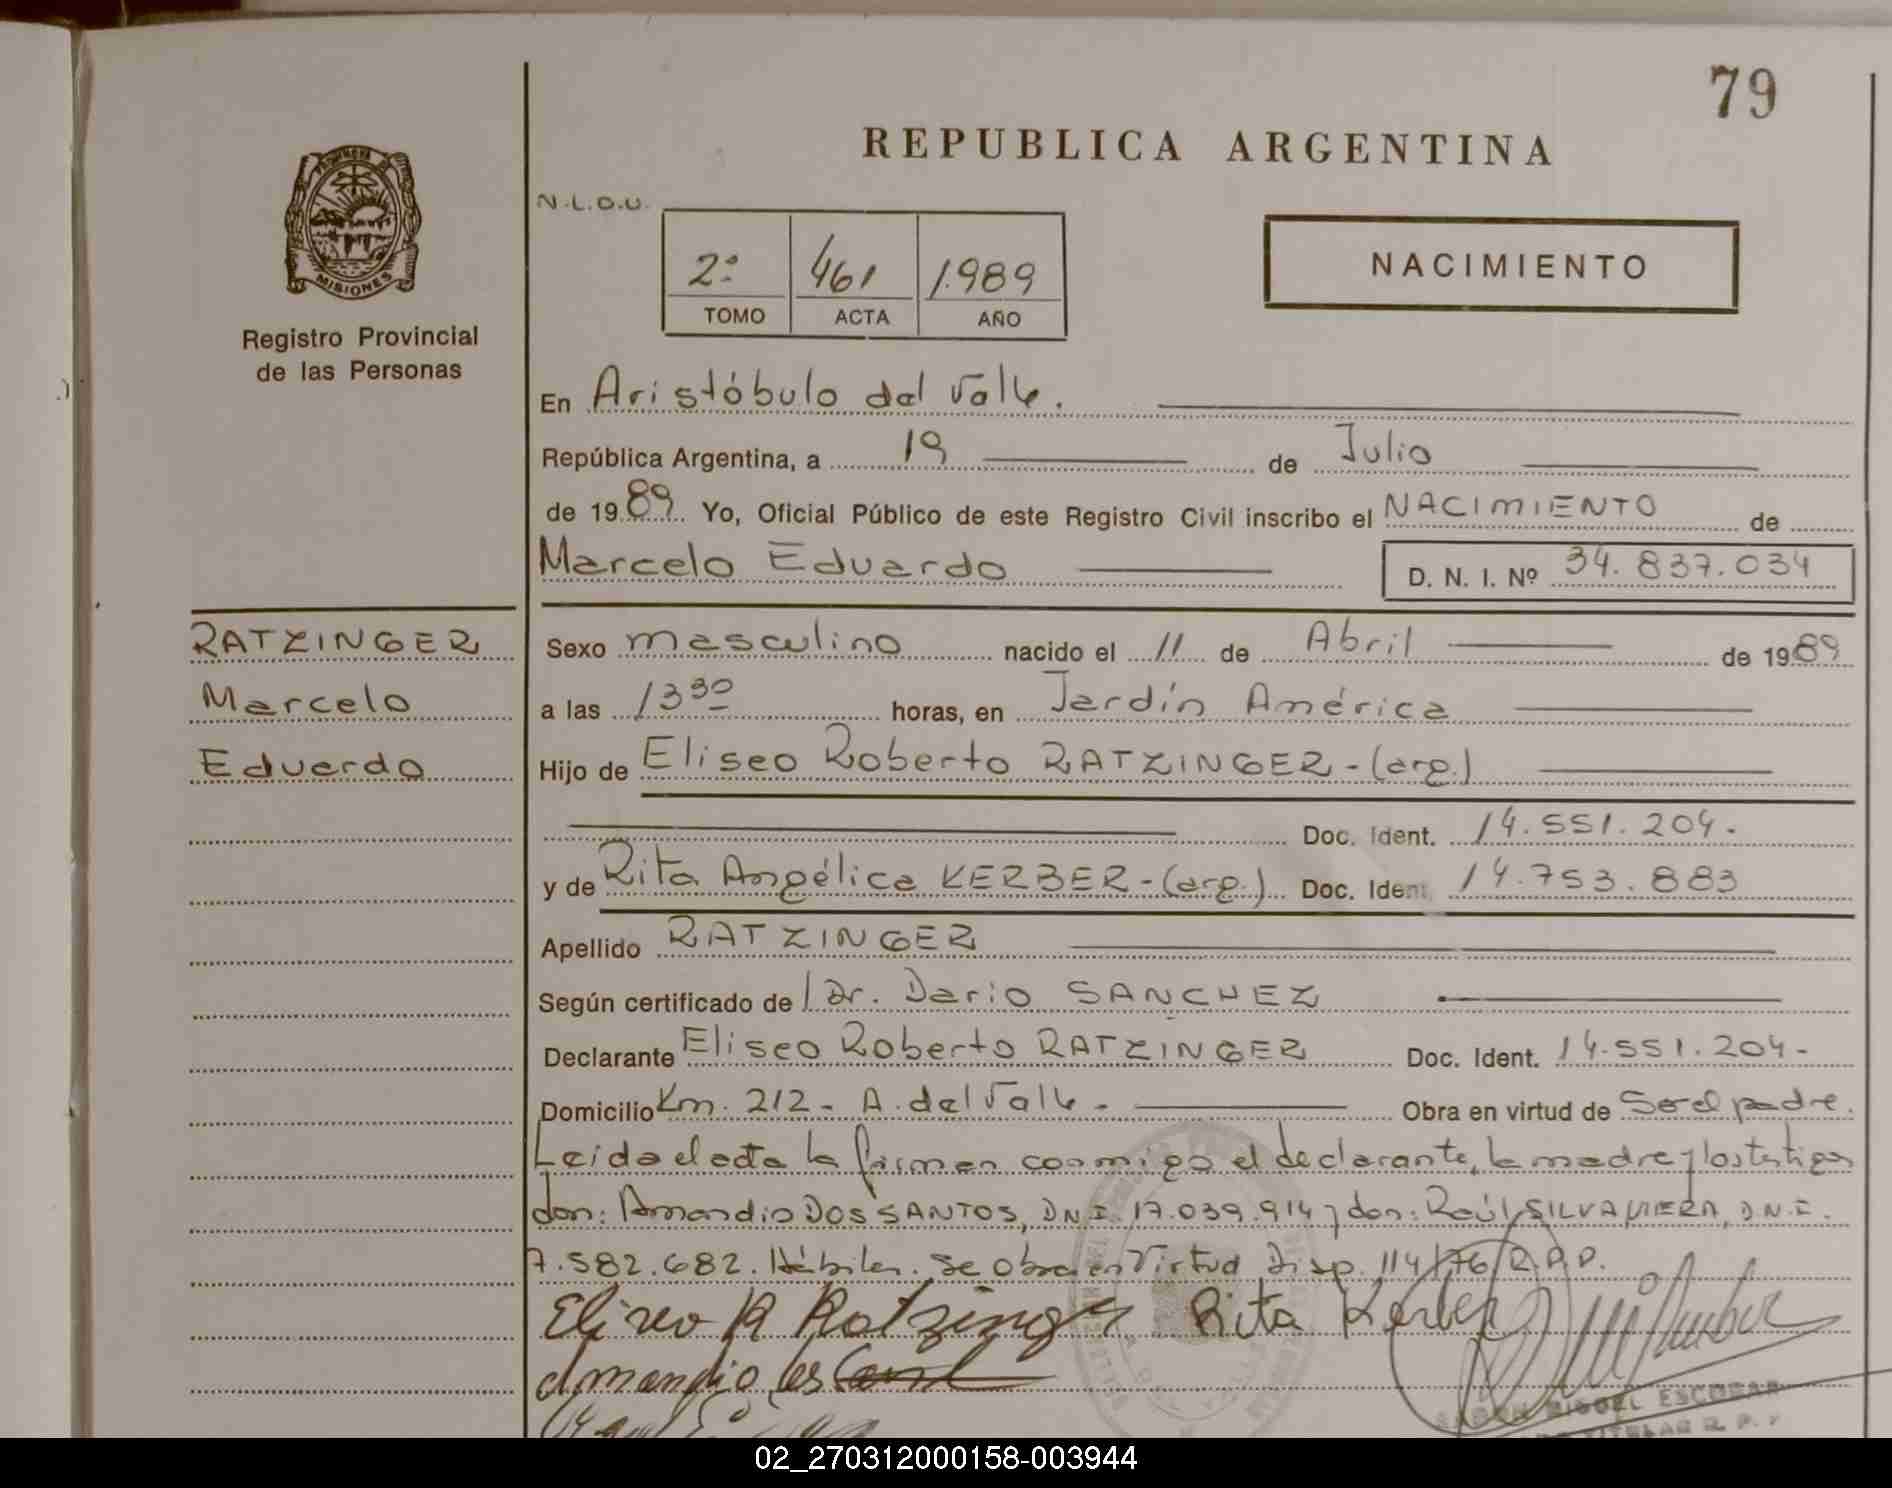 79
REPUBLICA ARGENTINA
PROVINCIA DE
MISIONES
Registro Provincial
de las Personas
N.L.O.U.
2º 461 1.989
TOMO ACTA AÑO
NACIMIENTO
En Aristóbulo del Valle.
República Argentina, a 19 de Julio
de 1989 Yo, Oficial Público de este Registro Civil inscribo el NACIMIENTO de
Marcelo Eduardo D. N. I. Nº 34.837.034
RATZINGER
Marcelo
Eduardo
Sexo masculino nacido el 11 de Abril de 1989
a las 13 30 horas, en Jardín América
Hijo de Eliseo Roberto RATZINGER-(arg.)
Doc. Ident. 14.551.204.
y de Rita Angélica KERBER-(arg.) Doc. Ident. 14.753.883
Apellido RATZINGER
Según certificado de Dr. Dario SANCHEZ
Declarante Eliseo Roberto RATZINGER Doc. Ident. 14.551.204-
Domicilio Km. 212- A. del Valle- Obra en virtud de Ser el padre.
Leida el acta la firman conmigo el declarante, la madre y los testigos
don: Amandio DOS SANTOS, DNI. 17.039.914 y don: Raúl SILVA VIERA, D.N.I.
7.582.682. Hábiles. Se obra en Virtud Disp. 114/76 R.P.P.
Eliseo R Ratzinger Rita Kerber
Amandio
MIGUEL ESCOBAR
TITULAR R. P.
02_270312000158-003944